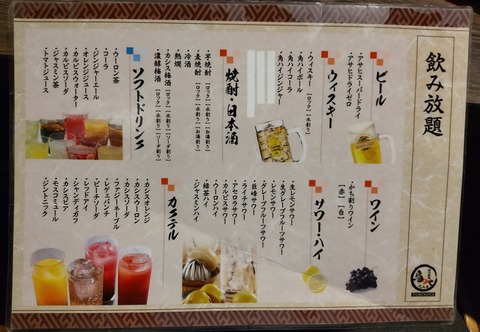 飲み放題
ビール
・アサヒスーパードライ
・アサヒドライゼロ
ウイスキー
・ウイスキー【ロック】【水割り】
・角ハイボール
・角ハイコーラ
・角ハイジンジャー
焼酎・日本酒
・芋焼酎【ロック】【水割り】【お湯割り】
・麦焼酎【ロック】【水割り】【お湯割り】
・冷酒
・熱燗
・カシス梅酒【ロック】【水割り】【ソーダ割り】
・濃醇梅酒【ロック】【水割り】【ソーダ割り】
ソフトドリンク
・ウーロン茶
・コーラ
・ジンジャーエール
・オレンジジュース
・カルピスウォーター
・カルピスソーダ
・ジャスミン茶
・トマトジュース
ワイン
・かち割りワイン
【赤】【白】
サワー・ハイ
・生レモンサワー
・レモンサワー
・生グレープフルーツサワー
・グレープフルーツサワー
・巨峰サワー
・ライチサワー
・アセロラサワー
・カルピスサワー
・ウーロンハイ
・緑茶ハイ
・ジャスミンハイ
カクテル
・カシスオレンジ
・カシスウーロン
・カシスソーダ
・ファジーネーブル
・レゲェパンチ
・ピーチソーダ
・レッドアイ
・シャンディガフ
・カンスピア
・モスコミュール
・ジントニック